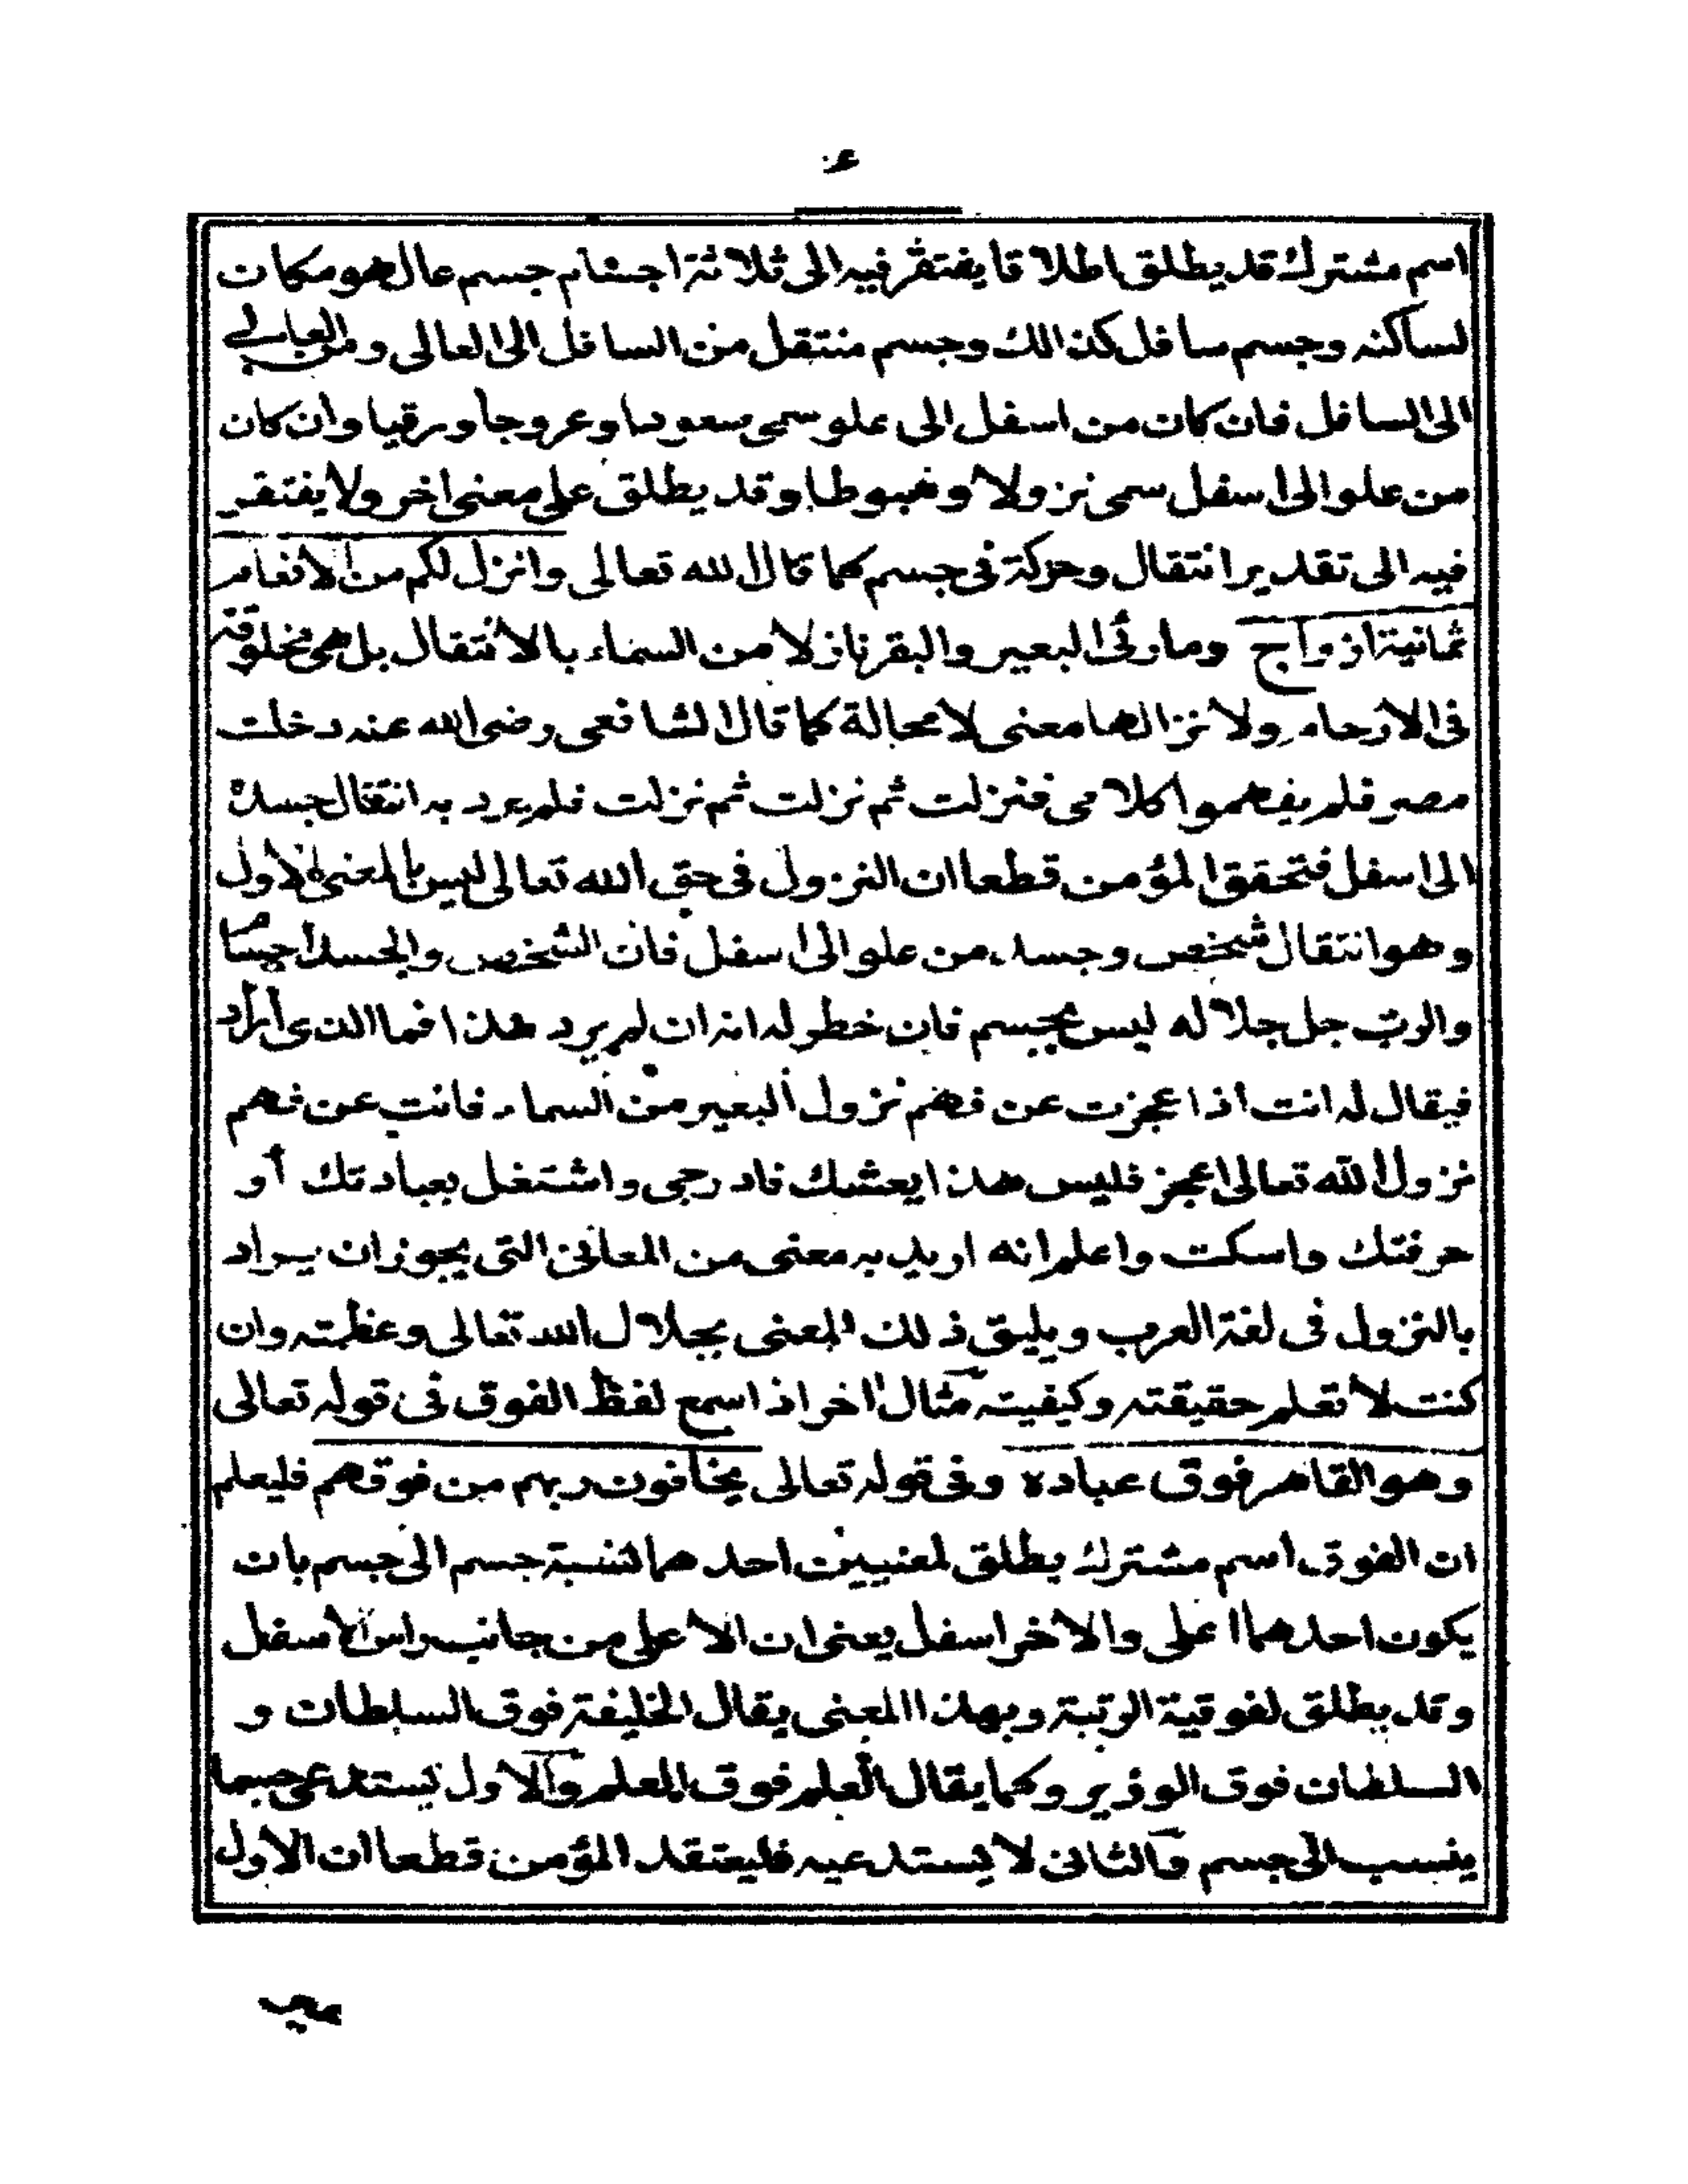 ع
اسم مشترك قد يطلق اطلاقا يفتقر فيه الى ثلاثة اجسام جسم عال هو مكان
لساكنه وجسم سافل كذالك وجسم منتقل من السافل الى العالى ومن العالي
الى السافل فان كان من اسفل الى علو سمى صعودا وعروجا ورقيا وان كان
من علو الى اسفل سمى نزولا وهبوطا وقد يطلق على معنى اخر ولا يفتقر
فيه الى تقدير انتقال وحركة فى جسم كما قال الله تعالى وانزل لكم من الانعام
ثمانية ازواج وما رئى البعير والبقر نازلا من السماء بالانتقال بل هى مخلوقة
فى الارحام ولانزالها معنى لا محالة كما قال الشافعى رضى الله عنه دخلت
مصر فلم يفهموا كلامى فنزلت ثم نزلت ثم نزلت فلم يرد به انتقال جسده
الى اسفل فتحقق المؤمن قطعا ان النزول فى حق الله تعالى ليس بالمعنى الاول
وهو انتقال شخص وجسد من علو الى اسفل فان الشخص والجسد اجساما
والرب جل جلاله ليس بجسم فان خطر له انه ان لم يرد هذا فما الذى اراد
فيقال له انت اذا عجزت عن فهم نزول البعير من السماء فانت عن فهم
نزول الله تعالى اعجز فليس هذا بعشك فادرجى واشتغل بعبادتك او
حرفتك واسكت واعلم انه اريد به معنى من المعانى التى يجوز ان يراد
بالنزول فى لغة العرب ويليق ذلك المعنى بجلال الله تعالى وعظمته وان
كنت لا تعلم حقيقته وكيفيته مثال اخر اذا سمع لفظ الفوق فى قوله تعالى
وهو القاهر فوق عباده وفى قوله تعالى يخافون ربهم من فوقهم فليعلم
ان الفوق اسم مشترك يطلق لمعنيين احدهما نسبة جسم الى جسم بان
يكون احدهما اعلى والاخر اسفل يعنى ان الاعلى من جانب راس الاسفل
وقد يطلق لفوقية الرتبة وبهذا المعنى يقال الخليفة فوق السلطان و
السلطان فوق الوزير وكما يقال العلم فوق المعلم والاول يستدعى جسما
ينسب الى جسم والثانى لا يستدعيه فليعتقد المؤمن قطعا ان الاول